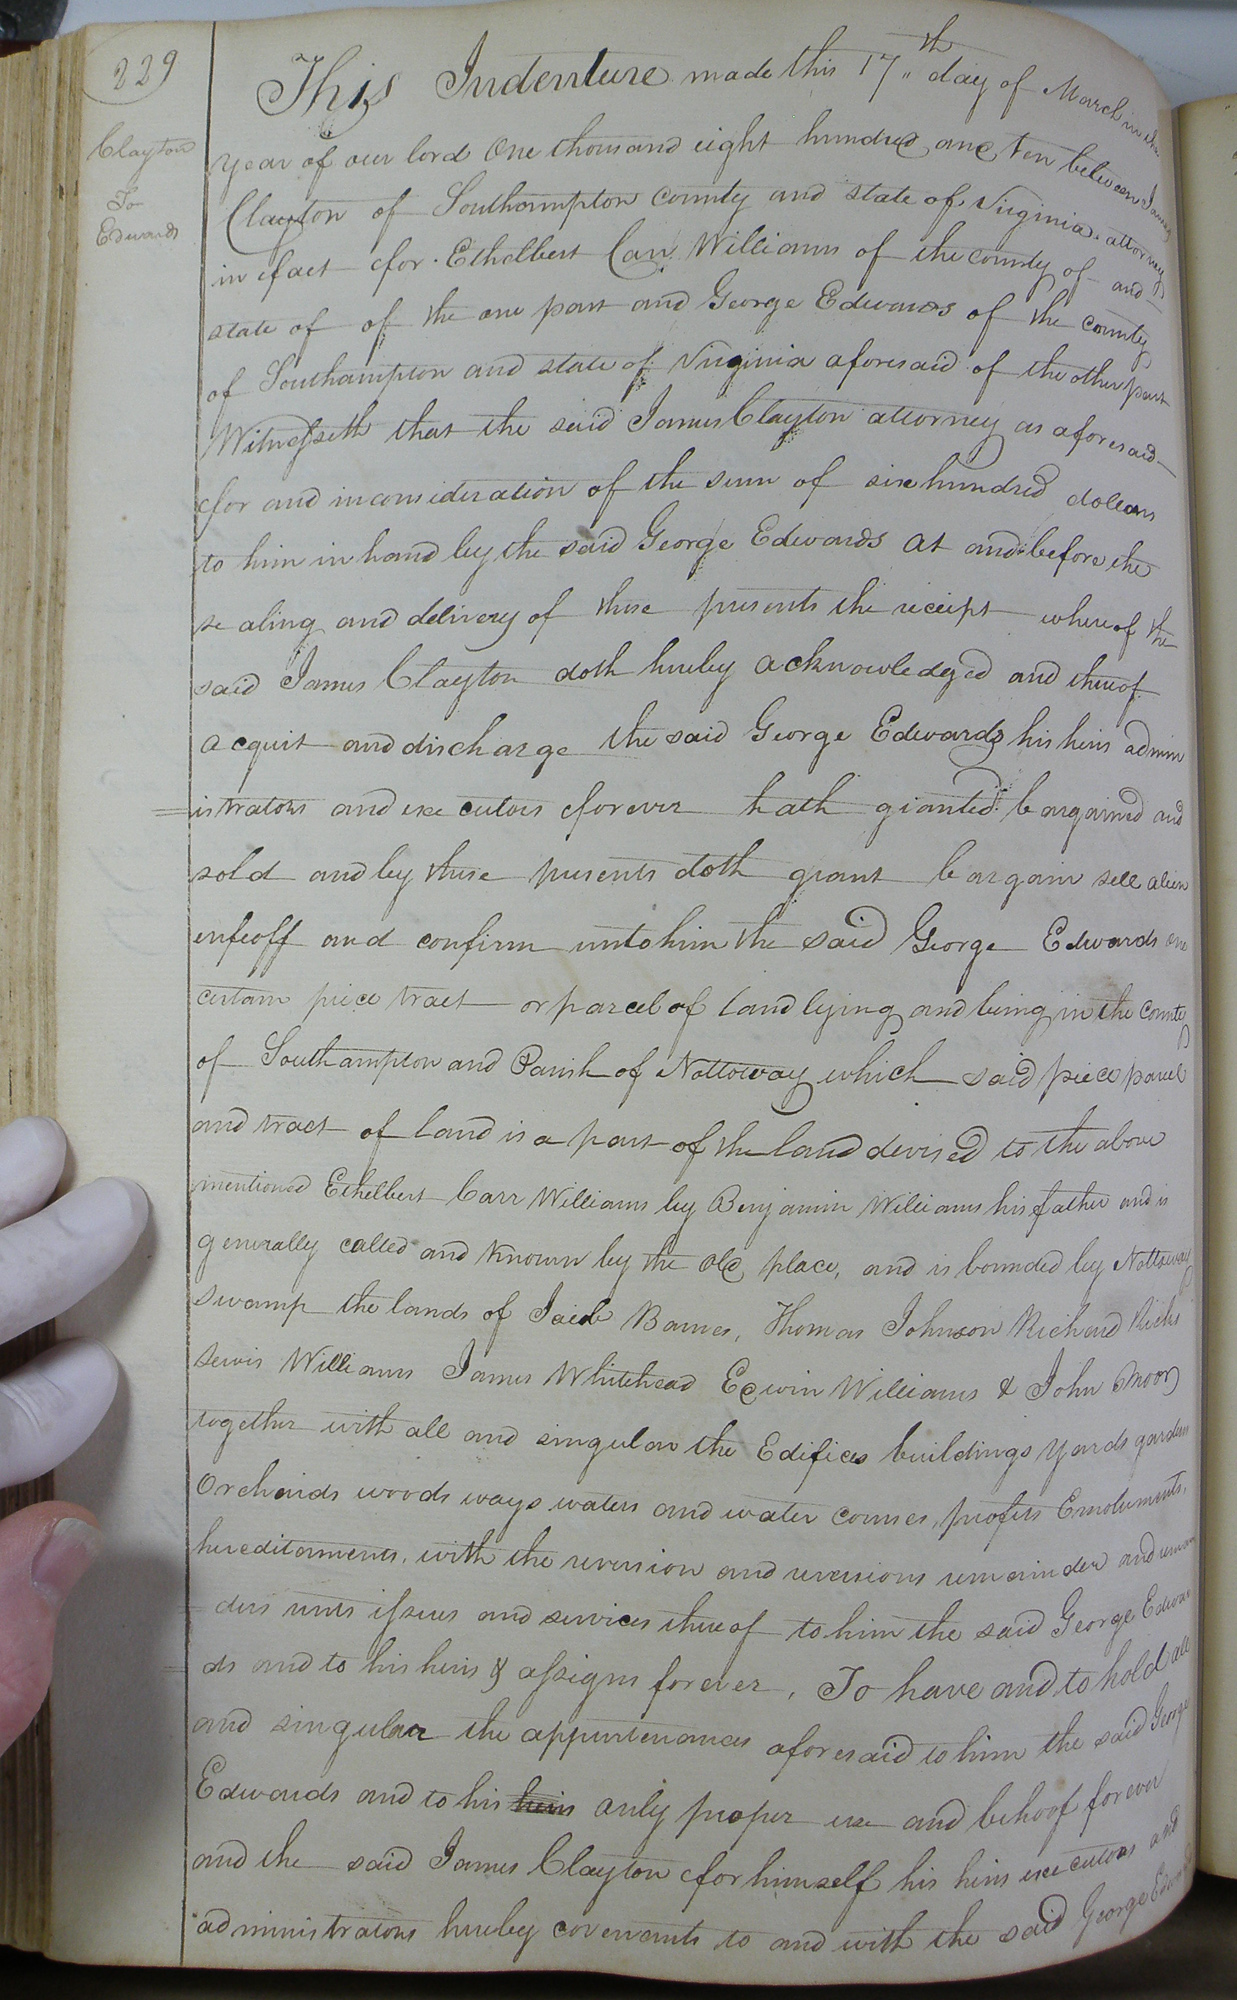 229
Clayton
To
Edwards
This Indenture made this 17th day of March in the
year of our lord One thousand eight hundred and ten between James
Clayton of Southampton county and state of Virginia attorney
in fact for Ethelbert Carr Williams of the county of and
state of of the one part and George Edwards of the county
of Southampton and state of Virginia aforesaid of the other part
Witnesseth that the said James Clayton attorney as aforesaid
for and in consideration of the sum of six hundred dolears
to him in hand by the said George Edwards at and before the
sealing and delivery of these presents the receipt whereof the
said James Clayton doth hereby acknowledged and thereof
acquit and discharge the said George Edwards his heirs admin
istrators and executors forever hath granted bargained and
sold and by these presents doth grant bargain sell alien
enfeoff and confirm unto him the said George Edwards one
certain piece tract or parcel of land lying and being in the county
of Southampton and Parish of Nottoway which said piece parcel
and tract of land is a part of the land devised to the above
mentioned Ethelbert Carr Williams by Benjamin Williams his father and is
generally called and known by the old place, and is bounded by Nottoway
swamp the lands of Jacob Barnes, Thomas Johnson Richard Ricks
Lewis Williams James Whitehead Edwin Williams & John Moor
together with all and singular the Edifices buildings yards gardens
Orchards woods ways waters and water courses, profits Emoluments,
hereditaments, with the reversion and reversions remainder and remain
ders rents issues and services thereof to him the said George Edwar
ds and to his heirs & assigns forever, To have and to hold all
and singular the appurtenances aforesaid to him the said George
Edwards and to his heirs only proper use and behoof forever
and the said James Clayton for himself his heirs executors and
administrators hereby covenants to and with the said George Edwards